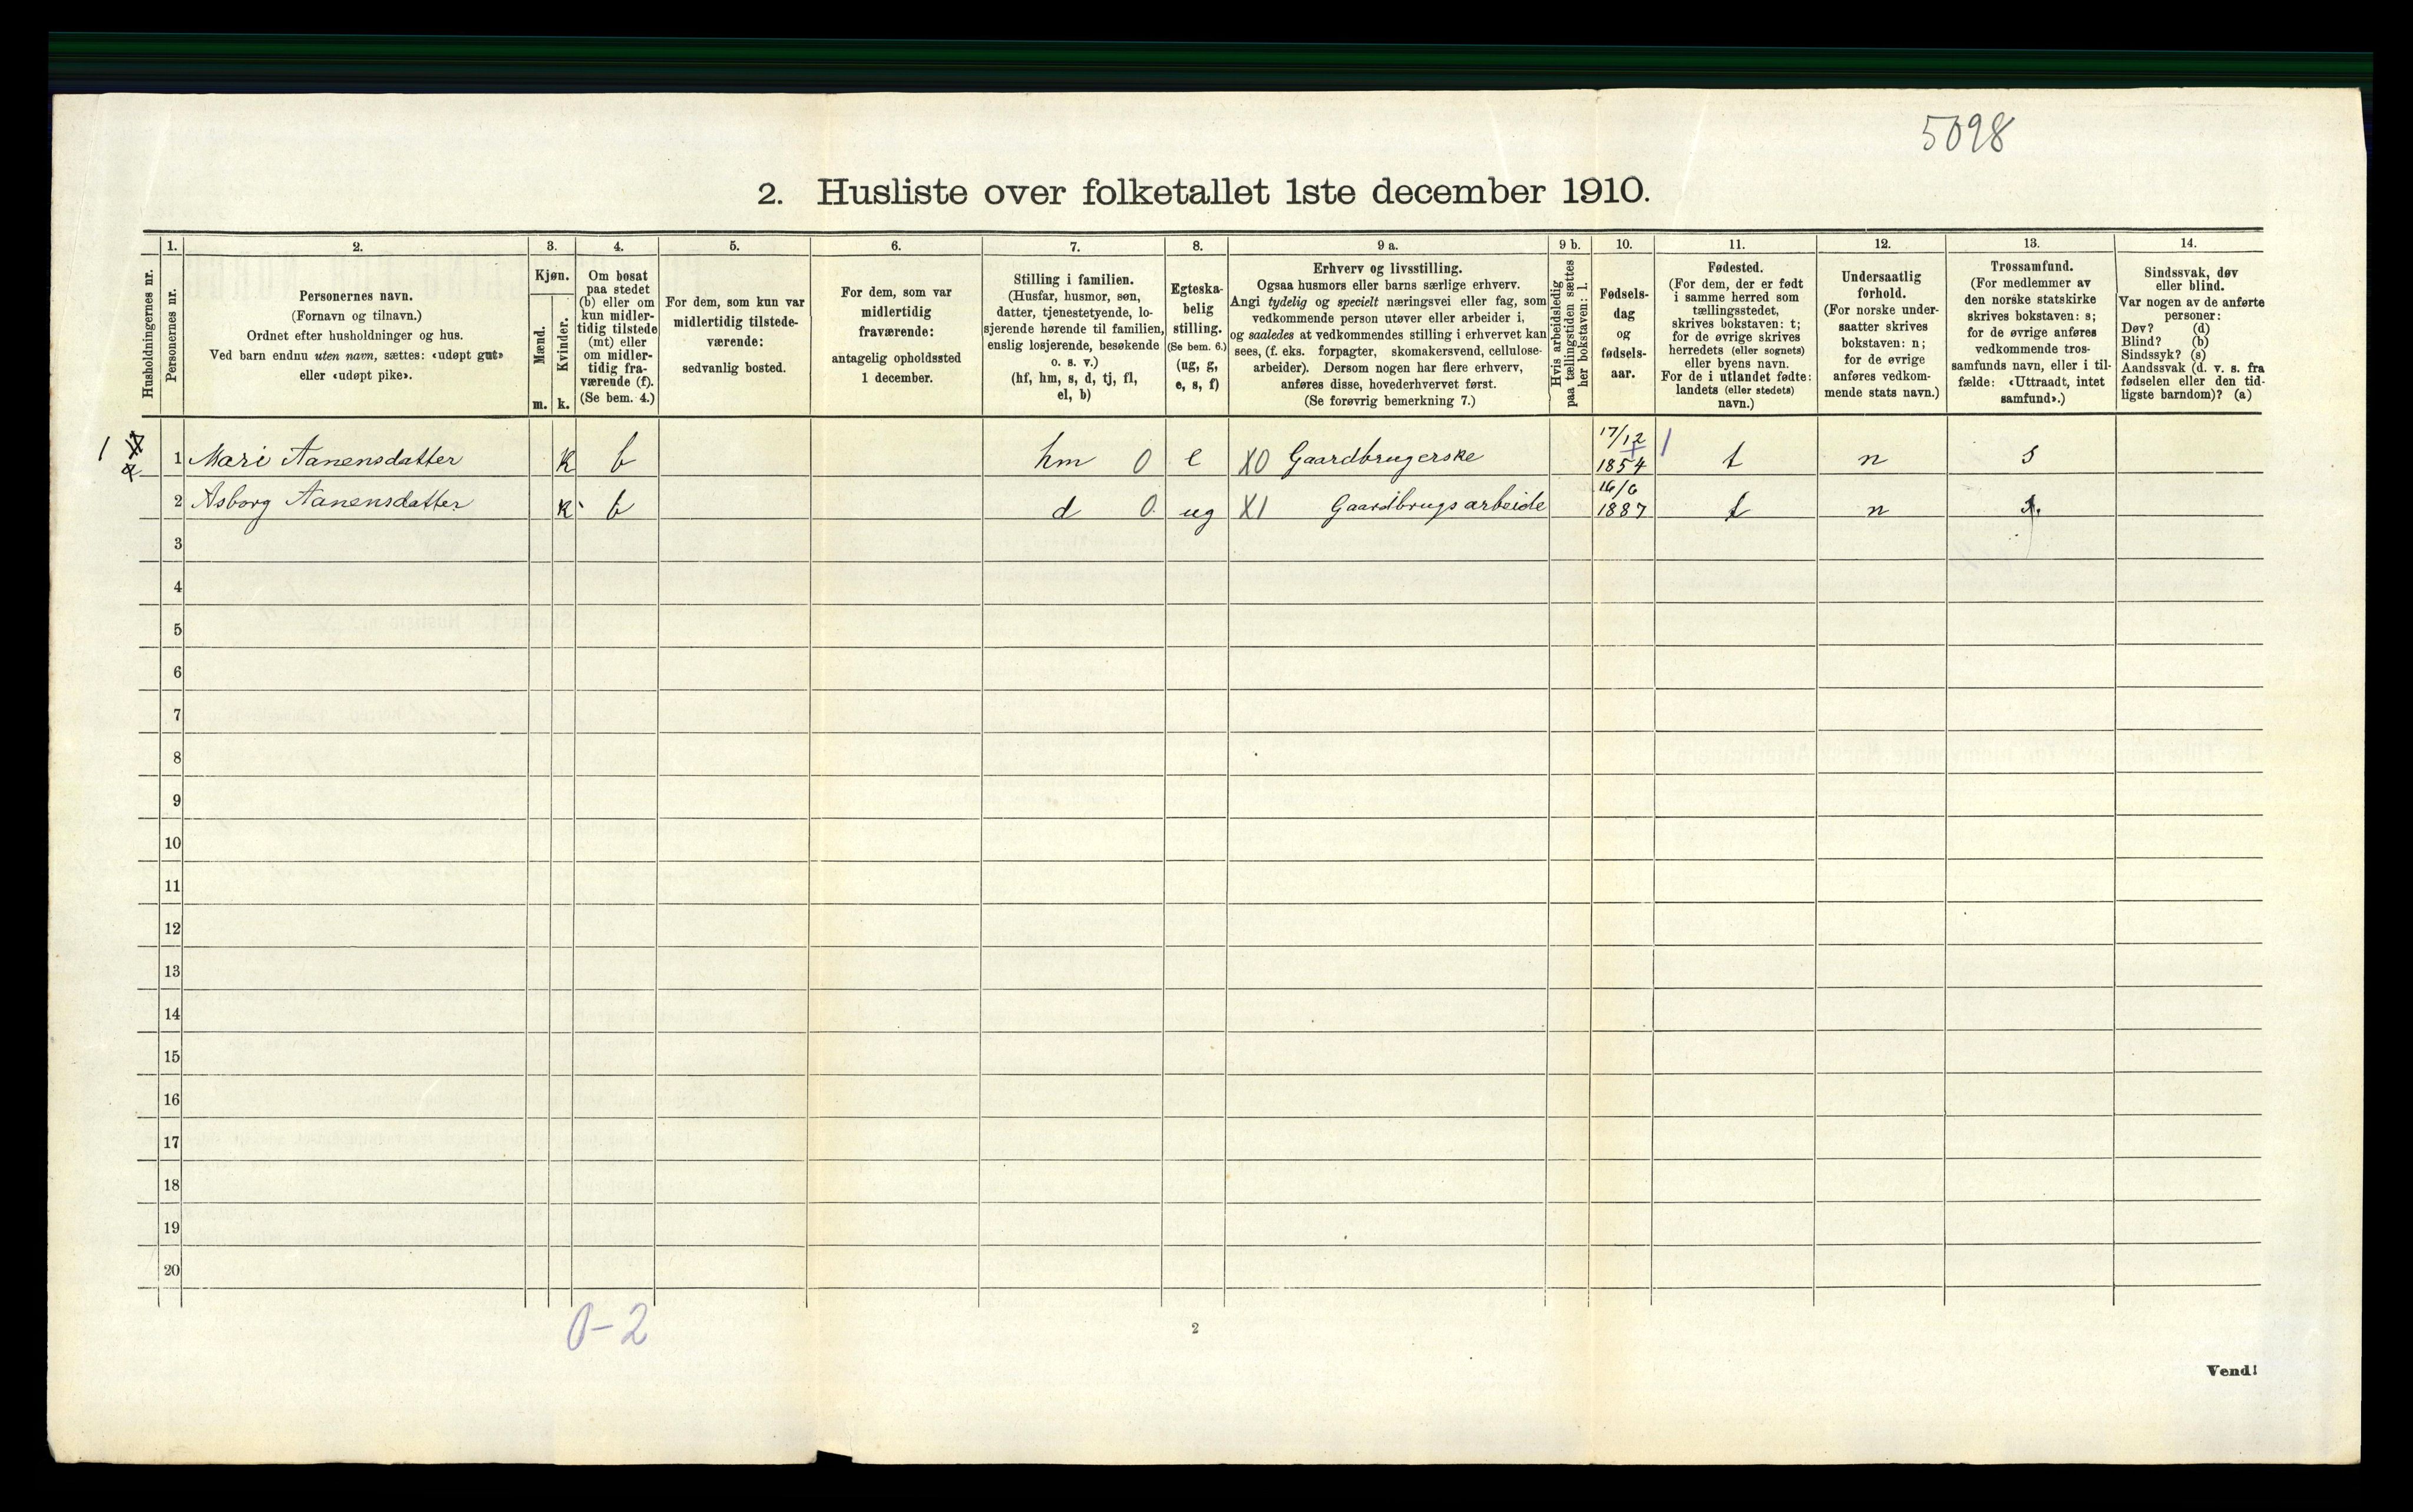 5098
2. Husliste over folketallet 1ste december 1910.
Husholdningernes nr.
1.
Personernes nr.
2.
Personernes navn.
(Fornavn og tilnavn.)
Ordnet efter husholdninger og hus.
Ved barn endnu uten navn, sættes: «udøpt gut»
eller «udøpt pike».
3.
Kjøn.
Mænd.
m.
Kvinder.
k.
4.
Om bosat
paa stedet
(b) eller om
kun midler-
tidig tilstede
(mt) eller
om midler-
tidig fra-
værende (f).
(Se bem. 4.)
5.
For dem, som kun var
midlertidig tilstede-
værende:
sedvanlig bosted.
6.
For dem, som var
midlertidig
fraværende:
antagelig opholdssted
1 december.
7.
Stilling i familien.
(Husfar, husmor, søn,
datter, tjenestetyende, lo-
sjerende hørende til familien,
enslig losjerende, besøkende
o. s. v.)
(hf, hm, s, d, tj, fl,
el, b)
8.
Egteska-
belig
stilling.
(Se bem. 6.)
(ug, g,
e, s, f)
9 a.
Erhverv og livsstilling.
Ogsaa husmors eller barns særlige erhverv.
Angi tydelig og specielt næringsvei eller fag, som
vedkommende person utøver eller arbeider i,
og saaledes at vedkommendes stilling i erhvervet kan
sees, (f. eks. forpagter, skomakersvend, cellulose-
arbeider). Dersom nogen har flere erhverv,
anføres disse, hovederhvervet først.
(Se forøvrig bemerkning 7.)
9 b.
Hvis arbeidsledig
paa tællingstiden sættes
her bokstaven: l.
10.
Fødsels-
dag
og
fødsels-
aar.
11.
Fødested.
(For dem, der er født
i samme herred som
tællingsstedet,
skrives bokstaven: t;
for de øvrige skrives
herredets (eller sognets)
eller byens navn.
For de i utlandet fødte:
landets (eller stedets)
navn.)
12.
Undersaatlig
forhold.
(For norske under-
saatter skrives
bokstaven: n;
for de øvrige
anføres vedkom-
mende stats navn.)
13.
Trossamfund.
(For medlemmer av
den norske statskirke
skrives bokstaven: s;
for de øvrige anføres
vedkommende tros-
samfunds navn, eller i til-
fælde: «Uttraadt, intet
samfund».)
14.
Sindssvak, døv
eller blind.
Var nogen av de anførte
personer:
Døv? (d)
Blind? (b)
Sindssyk? (s)
Aandssvak (d. v. s. fra
fødselen eller den tid-
ligste barndom)? (a)
1 1 Mari Aanensdatter k b hm 0 e X0 Gaardbrugerske 17/12 1854 1 t n s
2 Asborg Aanensdatter k b d 0 ug X1 Gaardbrugsarbeide 16/6 1887 t n s.
3
4
5
6
7
8
9
10
11
12
13
14
15
16
17
18
19
20
0-2
2
Vend!